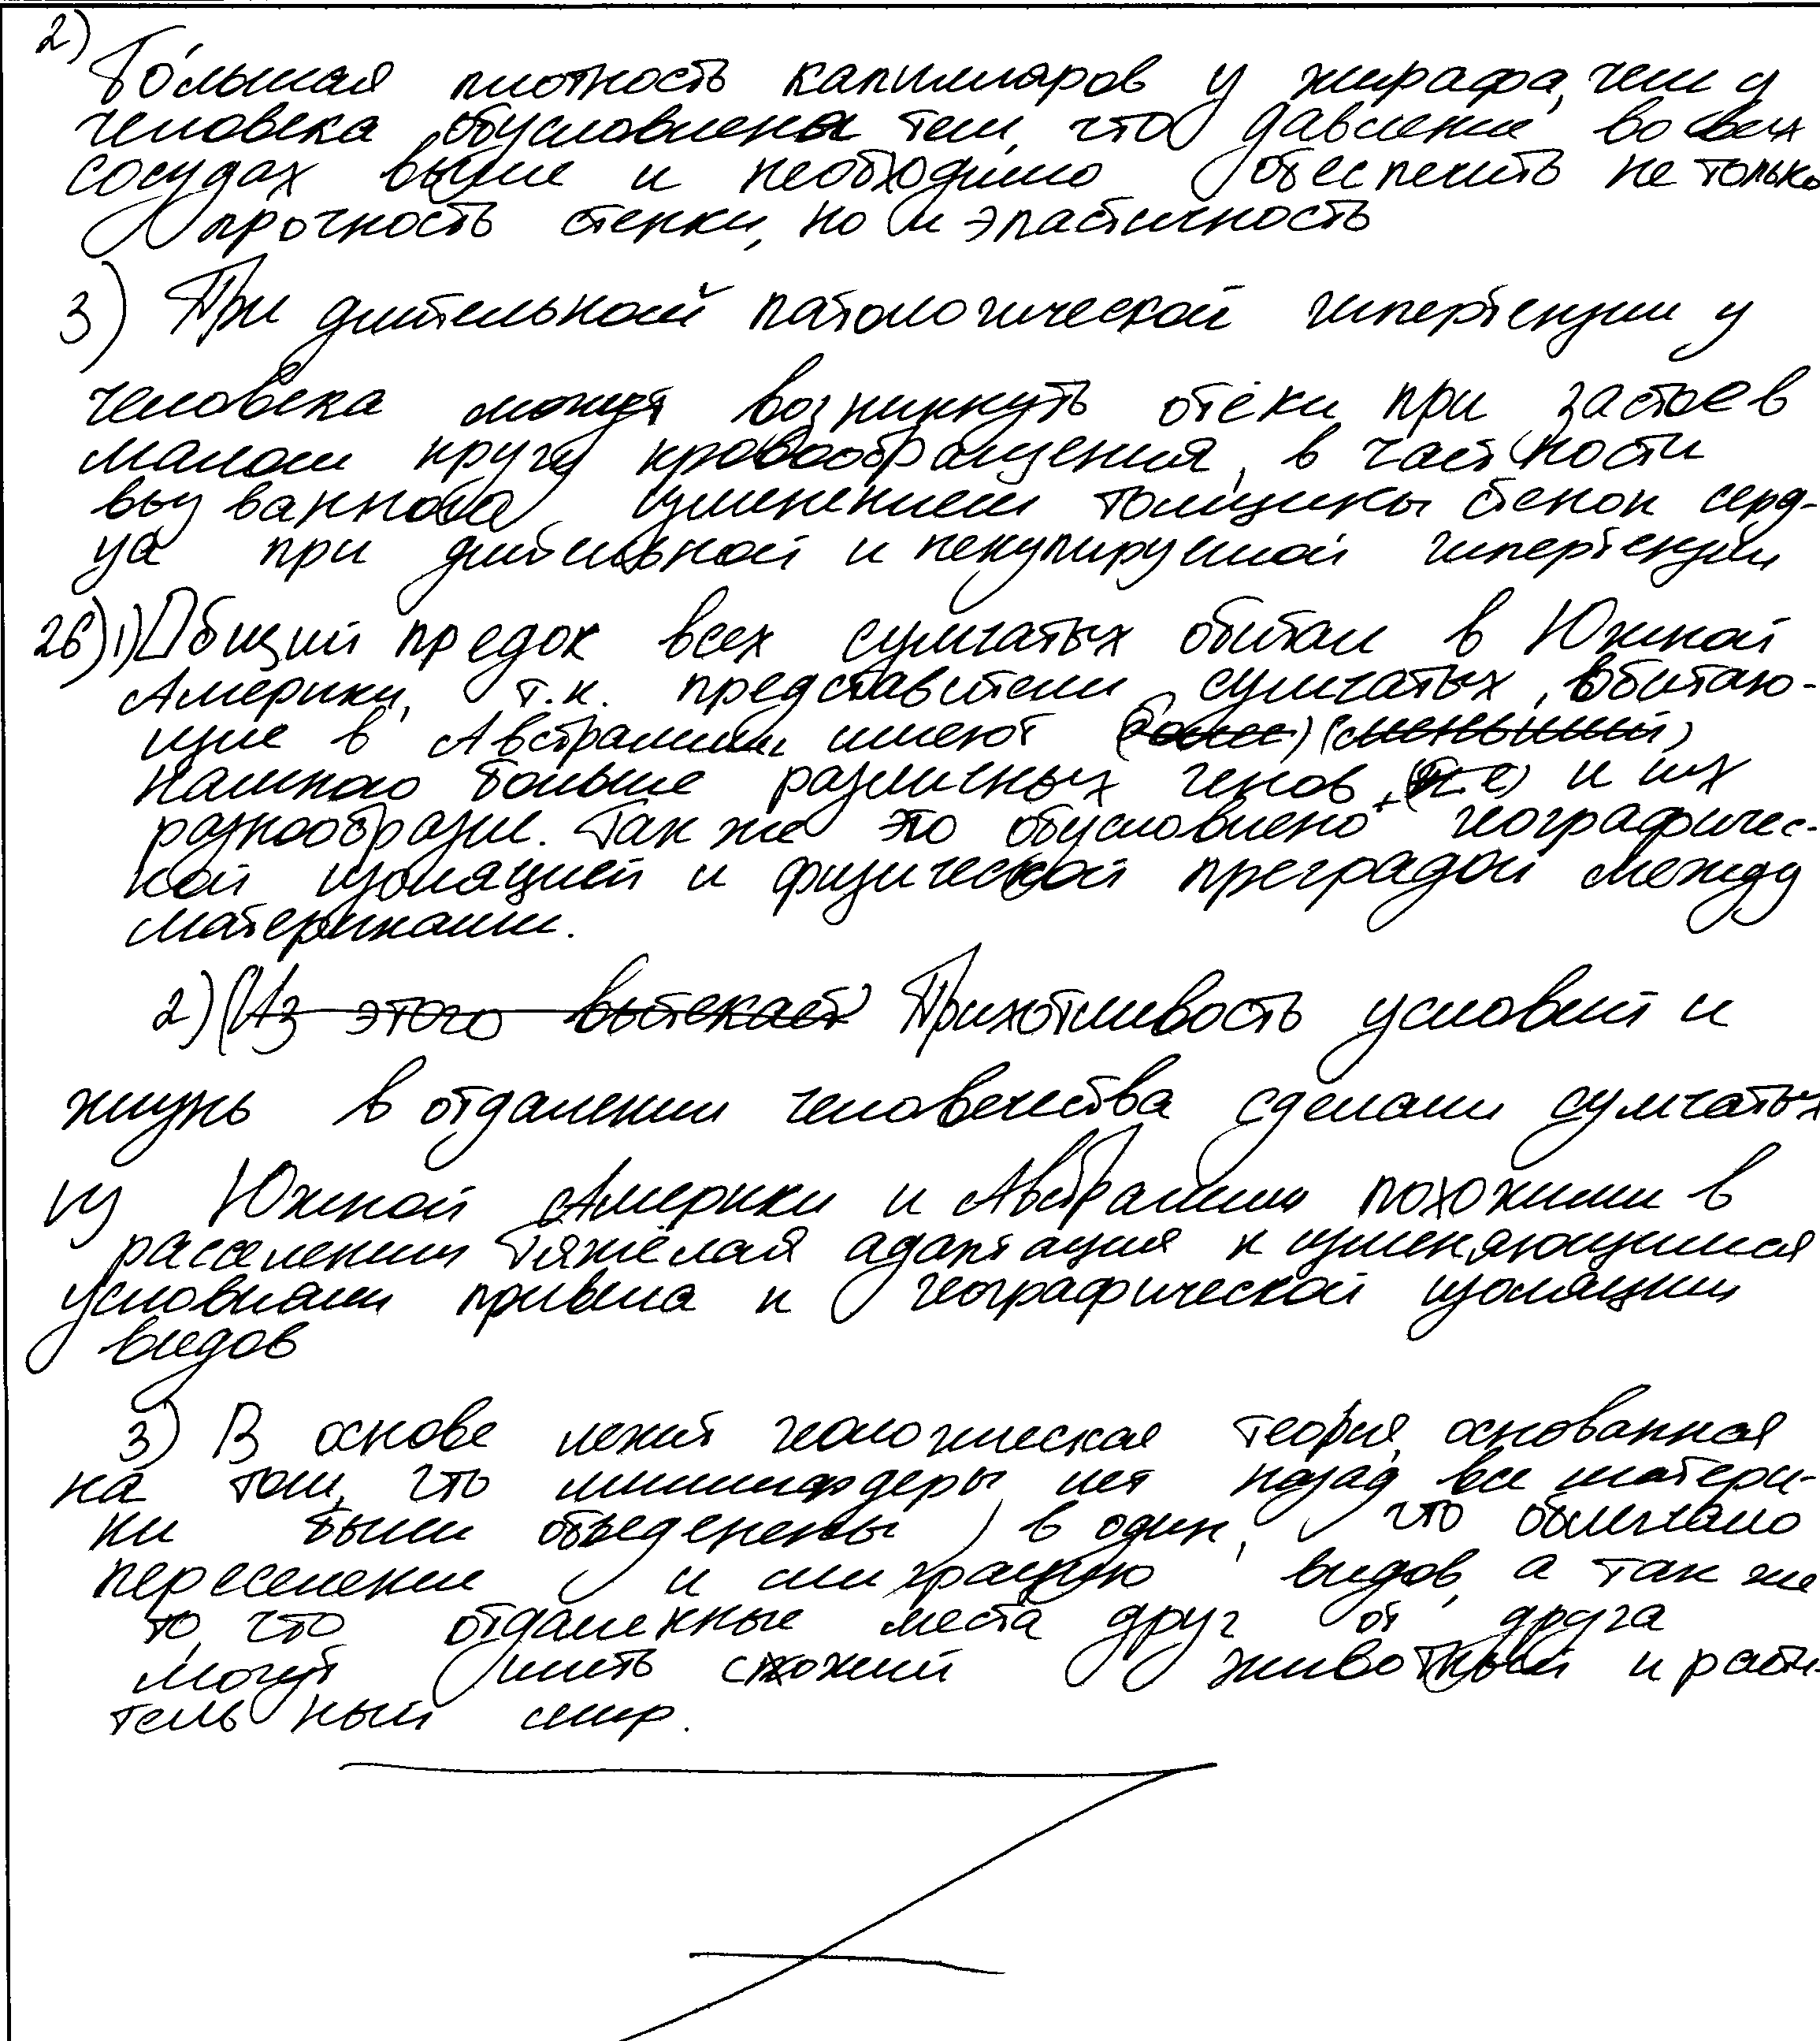 2)
Бо́льшая плотность капилляров у жирафа, чем у
человека обусловлена тем, что давление во всех
сосудах выше и необходимо обеспечить не только
прочность стенки, но и эластичность
3) При длительной патологической гипертензии у
человека могут возникнуть отёки при застое в
малом кругу кровообращения, в частности
вызванного изменением толщины стенок серд-
ца при длительной и некупируемой гипертензии
26) 1) Общий предок всех сумчатых обитал в Южной
Америки, т.к. представители сумчатых, обитаю-
щие в Австралии имеют (более) (меньший)
намного больше различных генов, (т.е) и их
разнообразие. Так же это обусловлено географичес-
кой изоляцией и физической преградой между
материками.
2) (Из этого вытекает) Прихотливость условий и
жизнь в отдалении человечества сделали сумчатых
из Южной Америки и Австралии похожими в
расселении Тяжёлая адаптация к изменяющимися
условиям привела к географической изоляции
видов
3) В основе лежит геологическая теория, основанная
на том, что миллиарды лет назад все матери-
ки были объеденены в один, что облегчало
переселение и миграцию видов, а так же
то, что отдаленные места друг от друга
могут иметь схожий животный и расти-
тельный мир.